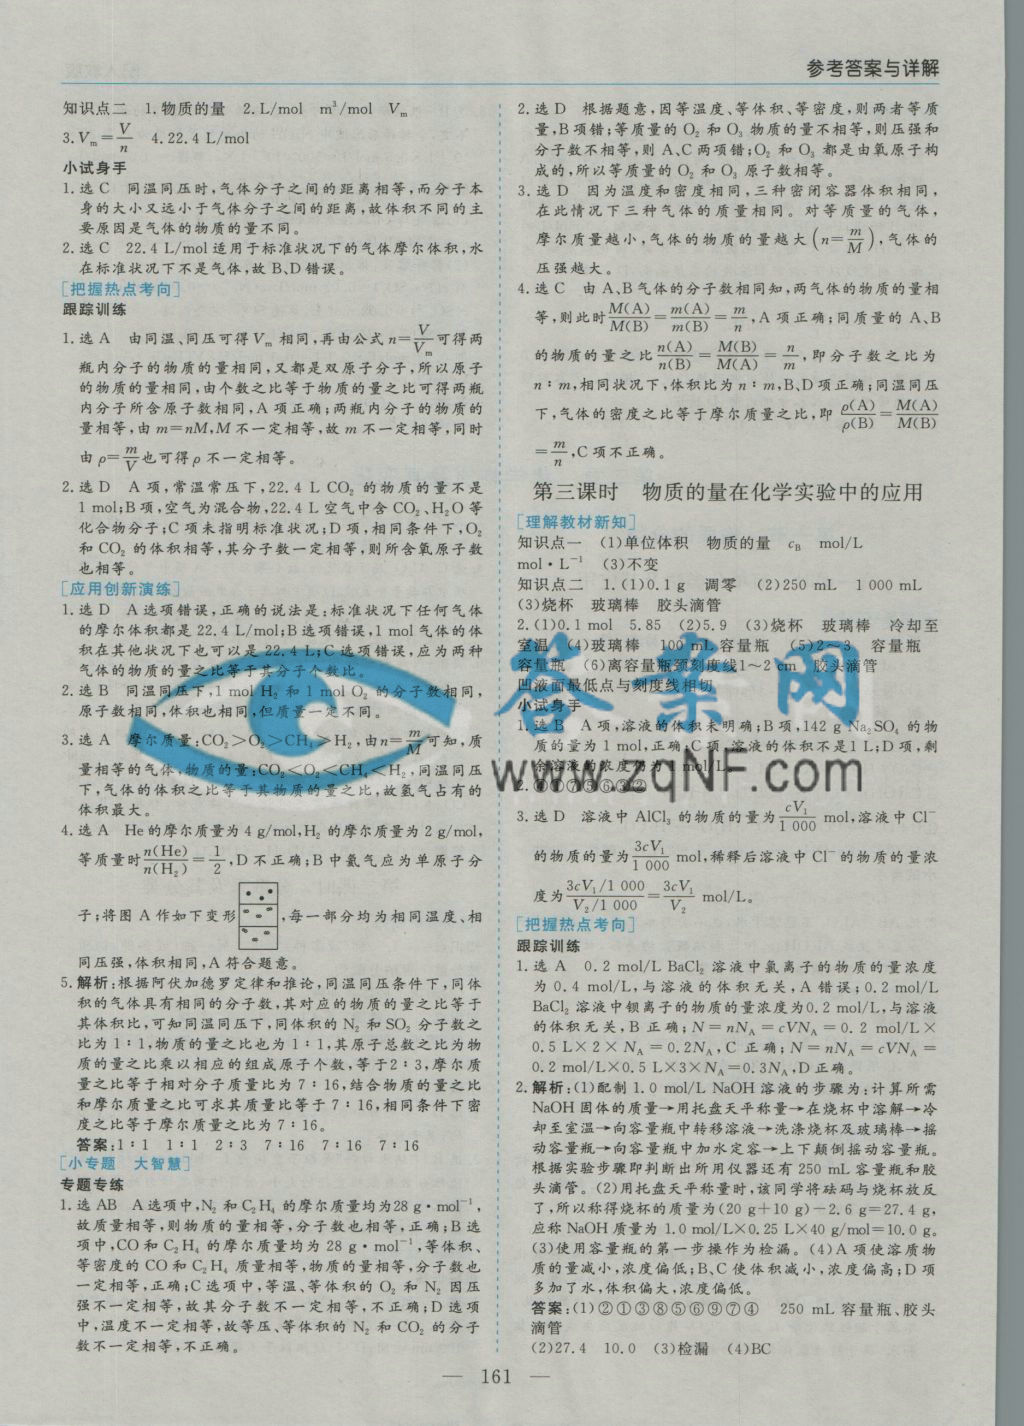 参考答案与详解
知识点二 1.物质的量 2.L/mol m³/mol Vₘ
3.Vₘ=V/n 4.22.4 L/mol
小试身手
1.选C 同温同压时,气体分子之间的距离相等,而分子本
身的大小又远小于气体分子之间的距离,故体积不同的主
要原因是气体的物质的量不同。
2.选C 22.4 L/mol适用于标准状况下的气体摩尔体积,水
在标准状况下不是气体,故B、D错误。
[把握热点考向]
跟踪训练
1.选A 由同温、同压可得Vₘ相同,再由公式n=V/Vₘ可得两
瓶内分子的物质的量相同,又都是双原子分子,所以原子
的物质的量相同,由个数之比等于物质的量之比可得两瓶
内分子所含原子数相同,A项正确;两瓶内分子的物质的
量相等,由m=nM,M不一定相等,故m不一定相等,同时
由ρ=m/V也可得ρ不一定相等。
2.选D A项,常温常压下,22.4 L CO₂的物质的量不是
1 mol;B项,空气为混合物,22.4 L空气中含CO₂、H₂O等
化合物分子;C项未指明标准状况;D项,相同条件下,O₂
和CO₂的体积相等,其分子数一定相等,则所含氧原子数
也相等。
[应用创新演练]
1.选D A选项错误,正确的说法是:标准状况下任何气体
的摩尔体积都是22.4 L/mol;B选项错误,1 mol气体的体
积在其他状况下也可以是22.4 L;C选项错误,应为两种
气体的物质的量之比等于其分子个数比。
2.选B 同温同压下,1 mol H₂和1 mol O₂的分子数相同,
原子数相同,体积也相同,但质量一定不同。
3.选A 摩尔质量:CO₂>O₂>CH₄>H₂,由n=m/M可知,质
量相等的气体,物质的量:CO₂<O₂<CH₄<H₂,同温同压
下,气体的体积之比等于其物质的量之比,故氢气占有的
体积最大。
4.选A He的摩尔质量为4 g/mol,H₂的摩尔质量为2 g/mol,
等质量时n(He)/n(H₂)=1/2,D不正确;B中氦气应为单原子分
子;将图A作如下变形,每一部分均为相同温度、相
同压强,体积相同,A符合题意。
5.解析:根据阿伏加德罗定律和推论,同温同压条件下,同体
积的气体具有相同的分子数,其对应的物质的量之比等于
其体积比,可知同温同压下,同体积的N₂和SO₂分子数之
比为1∶1,物质的量之比也为1∶1,其原子总数之比为物
质的量之比乘以相应的组成原子个数,等于2∶3,摩尔质
量之比等于相对分子质量比为7∶16,结合物质的量之比
和摩尔质量之比可求其质量比等于7∶16,相同条件下密
度之比等于摩尔质量之比为7∶16。
答案:1∶1 1∶1 2∶3 7∶16 7∶16 7∶16
[小专题 大智慧]
专题专练
1.选AB A选项中,N₂和C₂H₄的摩尔质量均为28 g·mol⁻¹,
故质量相等,则物质的量相等,分子数也相等,正确;B选
项中,CO和C₂H₄的摩尔质量均为28 g·mol⁻¹,等体积、
等密度的CO和C₂H₄质量相等,物质的量相等,分子数也
一定相等,正确;C选项中,等温、等体积的O₂和N₂因压
强不一定相等,故其分子数不一定相等,不正确;D选项
中,温度不一定相等,故等压、等体积的N₂和CO₂的分子
数不一定相等,不正确。
2.选D 根据题意,因等温度、等体积、等密度,则两者等质
量,B项错;等质量的O₂和O₃物质的量不相等,则压强和
分子数不相等,则A、C两项错;O₂和O₃都是由氧原子构
成的,所以等质量的O₂和O₃原子数相等。
3.选D 因为温度和密度相同,三种密闭容器体积相同,
在此情况下三种气体的质量相同。对等质量的气体,
摩尔质量越小,气体的物质的量越大(n=m/M),气体的
压强越大。
4.选C 由A、B气体的分子数相同知,两气体的物质的量相
等,则此时M(A)/M(B)=m(A)/m(B)=m/n,A项正确;同质量的A、B
的物质的量之比n(A)/n(B)=M(B)/M(A)=n/m,即分子数之比为
n∶m,相同状况下,体积比为n∶m,B、D项正确;同温同压
下,气体的密度之比等于摩尔质量之比,即ρ(A)/ρ(B)=M(A)/M(B)
=m/n,C项不正确。
第三课时 物质的量在化学实验中的应用
[理解教材新知]
知识点一 (1)单位体积 物质的量 c_B mol/L
mol·L⁻¹ (3)不变
知识点二 1.(1)0.1 g 调零 (2)250 mL 1 000 mL
(3)烧杯 玻璃棒 胶头滴管
2.(1)0.1 mol 5.85 (2)5.9 (3)烧杯 玻璃棒 冷却至
室温 (4)玻璃棒 100 mL容量瓶 (5)2~3 容量瓶
容量瓶 (6)离容量瓶颈刻度线1~2 cm 胶头滴管
凹液面最低点与刻度线相切
小试身手
1.选B A项,溶液的体积未明确;B项,142 g Na₂SO₄的物
质的量为1 mol,正确;C项,溶液的体积不是1 L;D项,剩
余溶液的浓度仍为1 mol/L。
2.④①⑦⑤⑥③②
3.选D 溶液中AlCl₃的物质的量为cV₁/1 000 mol,溶液中Cl⁻
的物质的量为3cV₁/1 000 mol,稀释后溶液中Cl⁻的物质的量浓
度为(3cV₁/1 000)/(V₂/1 000)=3cV₁/V₂ mol/L。
[把握热点考向]
跟踪训练
1.选A 0.2 mol/L BaCl₂溶液中氯离子的物质的量浓度
为0.4 mol/L,与溶液的体积无关,A错误;0.2 mol/L
BaCl₂溶液中钡离子的物质的量浓度为0.2 mol/L,与溶液
的体积无关,B正确;N=nN_A=cVN_A=0.2 mol/L×
0.5 L×2×N_A=0.2N_A,C正确;N=nN_A=cVN_A=
0.2 mol/L×0.5 L×3×N_A=0.3N_A,D正确。
2.解析:(1)配制1.0 mol/L NaOH溶液的步骤为:计算所需
NaOH固体的质量→用托盘天平称量→在烧杯中溶解→冷
却至室温→向容量瓶中转移溶液→洗涤烧杯及玻璃棒→摇
动容量瓶→向容量瓶中加水定容→上下颠倒摇动容量瓶。
根据实验步骤即判断出所用仪器还有250 mL容量瓶和胶
头滴管。(2)用托盘天平称量时,该同学将砝码与烧杯放反
了,所以称得烧杯的质量为(20 g+10 g)-2.6 g=27.4 g,
应称NaOH质量为1.0 mol/L×0.25 L×40 g/mol=10.0 g。
(3)使用容量瓶的第一步操作为检漏。(4)A项使溶质物
质的量减小,浓度偏低;B、C使体积减小,浓度偏高;D项
多加了水,体积偏大,浓度偏低。
答案:(1)②①③⑧⑤⑥⑨⑦④ 250 mL容量瓶、胶头
滴管
(2)27.4 10.0 (3)检漏 (4)BC
答案网
www.zqNF.com
— 161 —